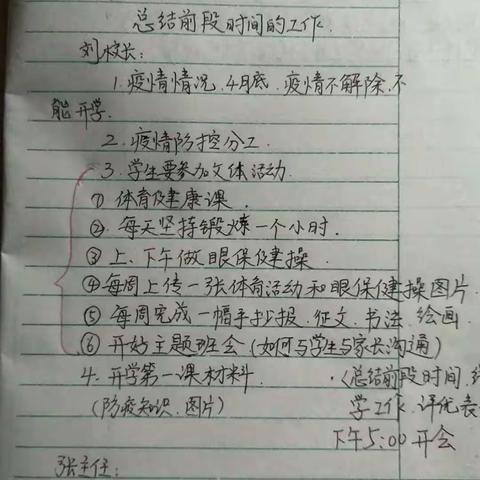 总结前段时间的工作.
刘校长:
1.疫情情况.4月底.疫情不解除.不
能开学.
2.疫情防控分工.
3.学生要参加文体活动.
① 体育健康课.
②.每天坚持锻炼一个小时.
③ 上、下午做眼保健操.
④每周上传一张体育活动和眼保健操图片.
⑤ 每周完成一幅手抄报.征文.书法.绘画.
⑥ 开好主题班会(如何与学生与家长沟通)
4.开学第一课材料. ·〈总结前段时间,
(防疫知识.图片) 学工作.评优表
下午5:00开会
张主任: